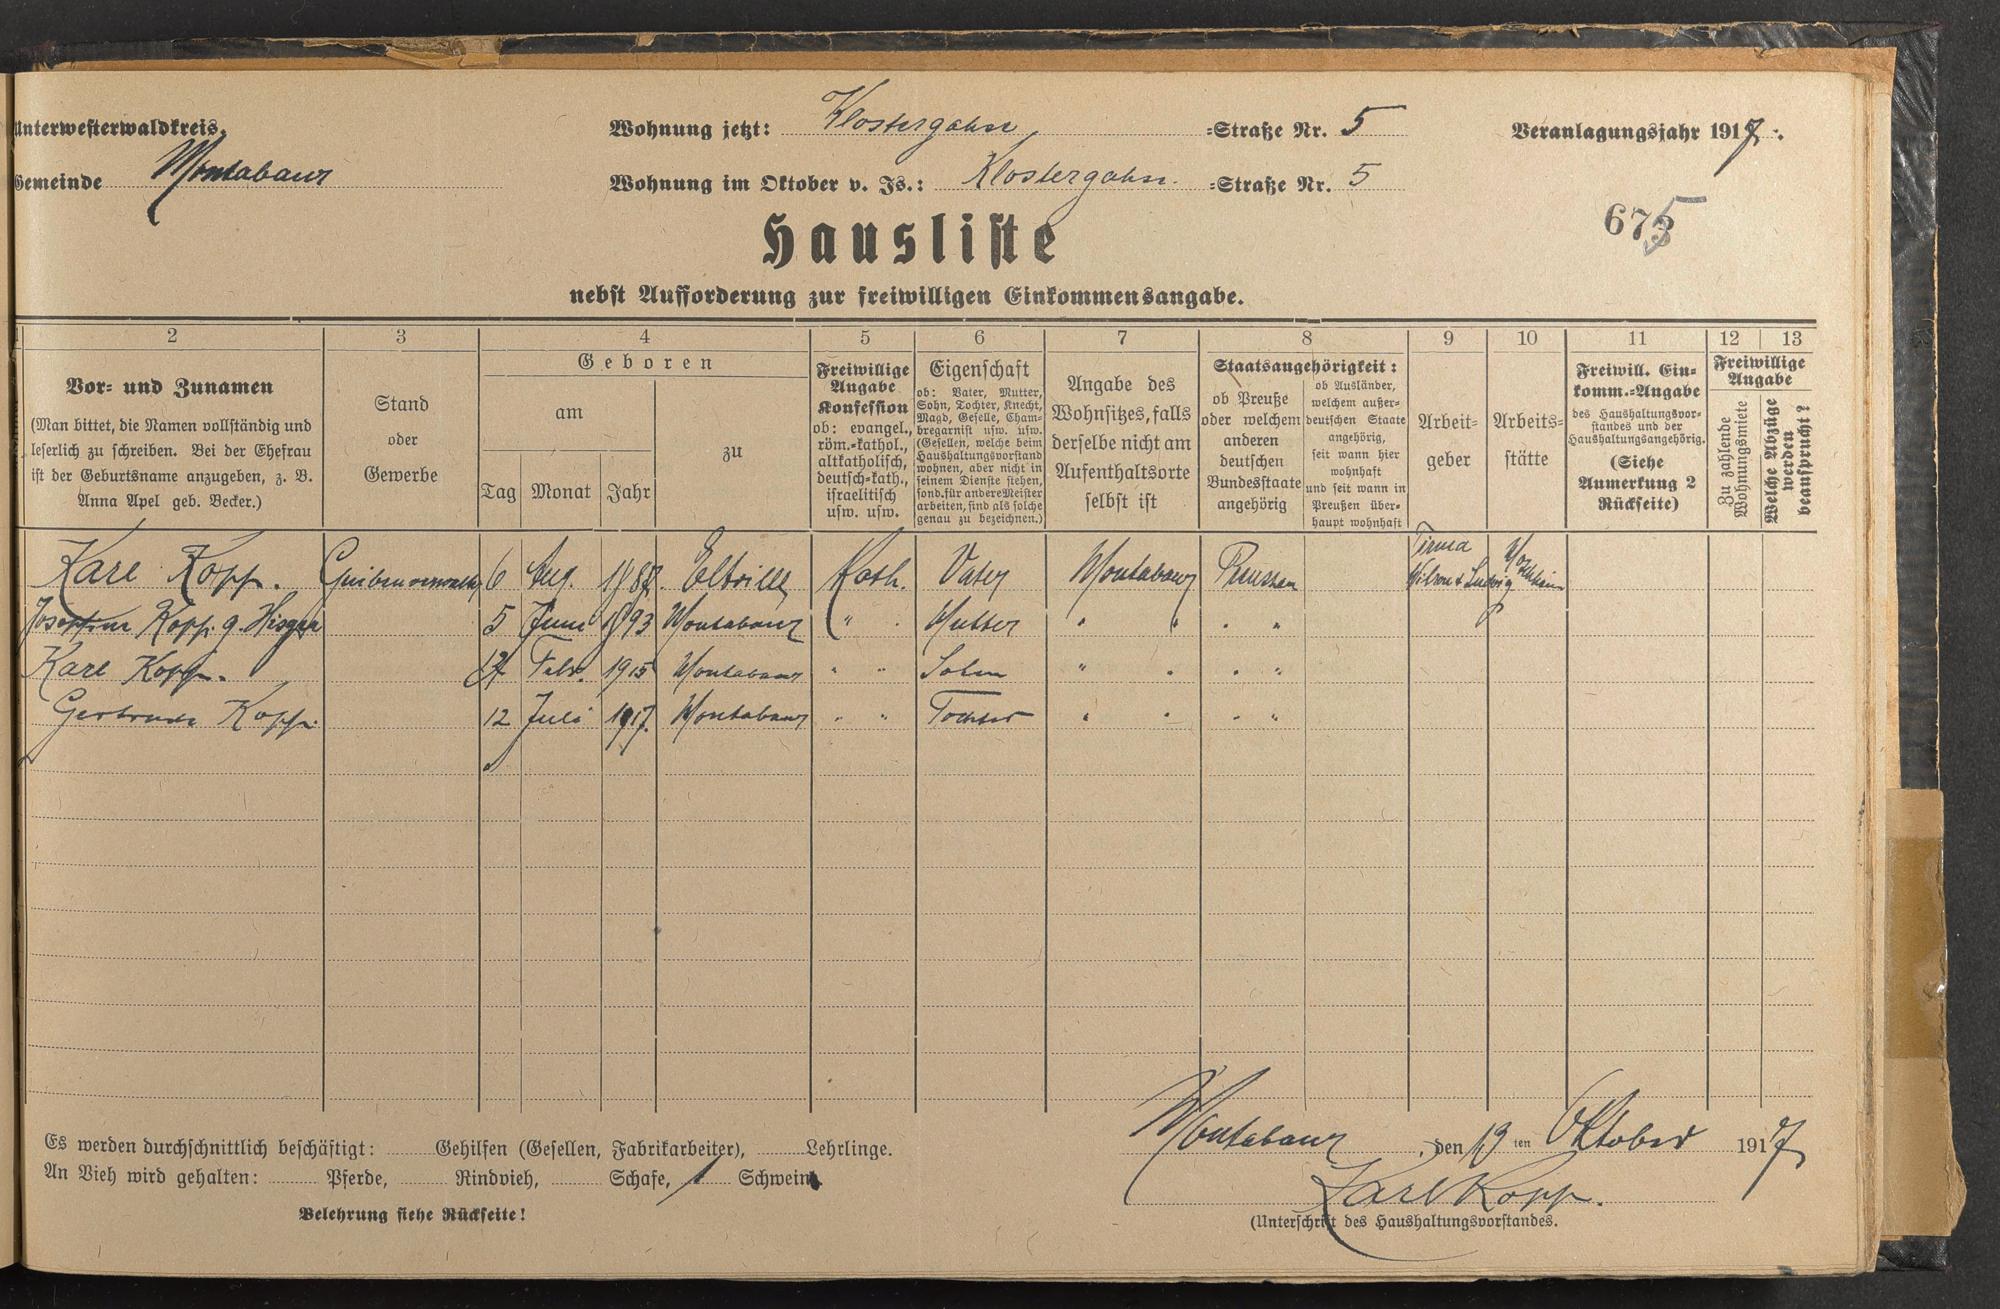 Unterwesterwaldkreis.
Gemeinde Montabaur
Wohnung jetzt: Klostergasse, =Straße Nr. 5
Wohnung im Oktober v. Js.: Klostergasse =Straße Nr. 5
Veranlagungsjahr 1917.
675
Hausliste
nebst Aufforderung zur freiwilligen Einkommensangabe.
2 3 4 5 6 7 8 9 10 11 12 13
Vor= und Zunamen
(Man bittet, die Namen vollständig und
leserlich zu schreiben. Bei der Ehefrau
ist der Geburtsname anzugeben, z. B.
Anna Apel geb. Becker.)
Stand
oder
Gewerbe
Geboren
am
Tag Monat Jahr
zu
Freiwillige
Angabe
Konfession
ob: evangel.,
röm.=kathol.,
altkatholisch,
deutsch=kath.,
israelitisch
usw. usw.
Eigenschaft
ob: Vater, Mutter,
Sohn, Tochter, Knecht,
Magd, Geselle, Cham=
bregarnist usw. usw.
(Gesellen, welche beim
Haushaltungsvorstand
wohnen, aber nicht in
seinem Dienste stehen,
sond. für andere Meister
arbeiten, sind als solche
genau zu bezeichnen.)
Angabe des
Wohnsitzes, falls
derselbe nicht am
Aufenthaltsorte
selbst ist
Staatsangehörigkeit:
ob Preuße
oder welchem
anderen
deutschen
Bundesstaate
angehörig
ob Ausländer,
welchem außer=
deutschen Staate
angehörig,
seit wann hier
wohnhaft
und seit wann in
Preußen über=
haupt wohnhaft
Arbeit=
geber
Arbeits=
stätte
Freiwill. Ein=
komm.=Angabe
des Haushaltungsvor=
standes und der
Haushaltungsangehörig.
(Siehe
Anmerkung 2
Rückseite)
Freiwillige
Angabe
Zu zahlende
Wohnungsmiete
Welche Abzüge
werden
beansprucht?
Karl Kopp. 6 Aug. 1887. Eltville Kath. Vater Montabaur Preussen Firma
Josefine Kopp. g. 5 Juni 1893 Montabaur " Mutter " " " "
Karl Kopp. Febr. 1915 Montabaur " " Sohn " " " "
Gertrude Kopp. 12 Juli 1917. Montabaur " " Tochter " " " "
Es werden durchschnittlich beschäftigt: Gehilfen (Gesellen, Fabrikarbeiter), Lehrlinge.
An Vieh wird gehalten: Pferde, Rindvieh, Schafe, 1 Schwein
Belehrung siehe Rückseite!
Montabaur, den 13 ten Oktober 1917
Karl Kopp.
(Unterschrift des Haushaltungsvorstandes.